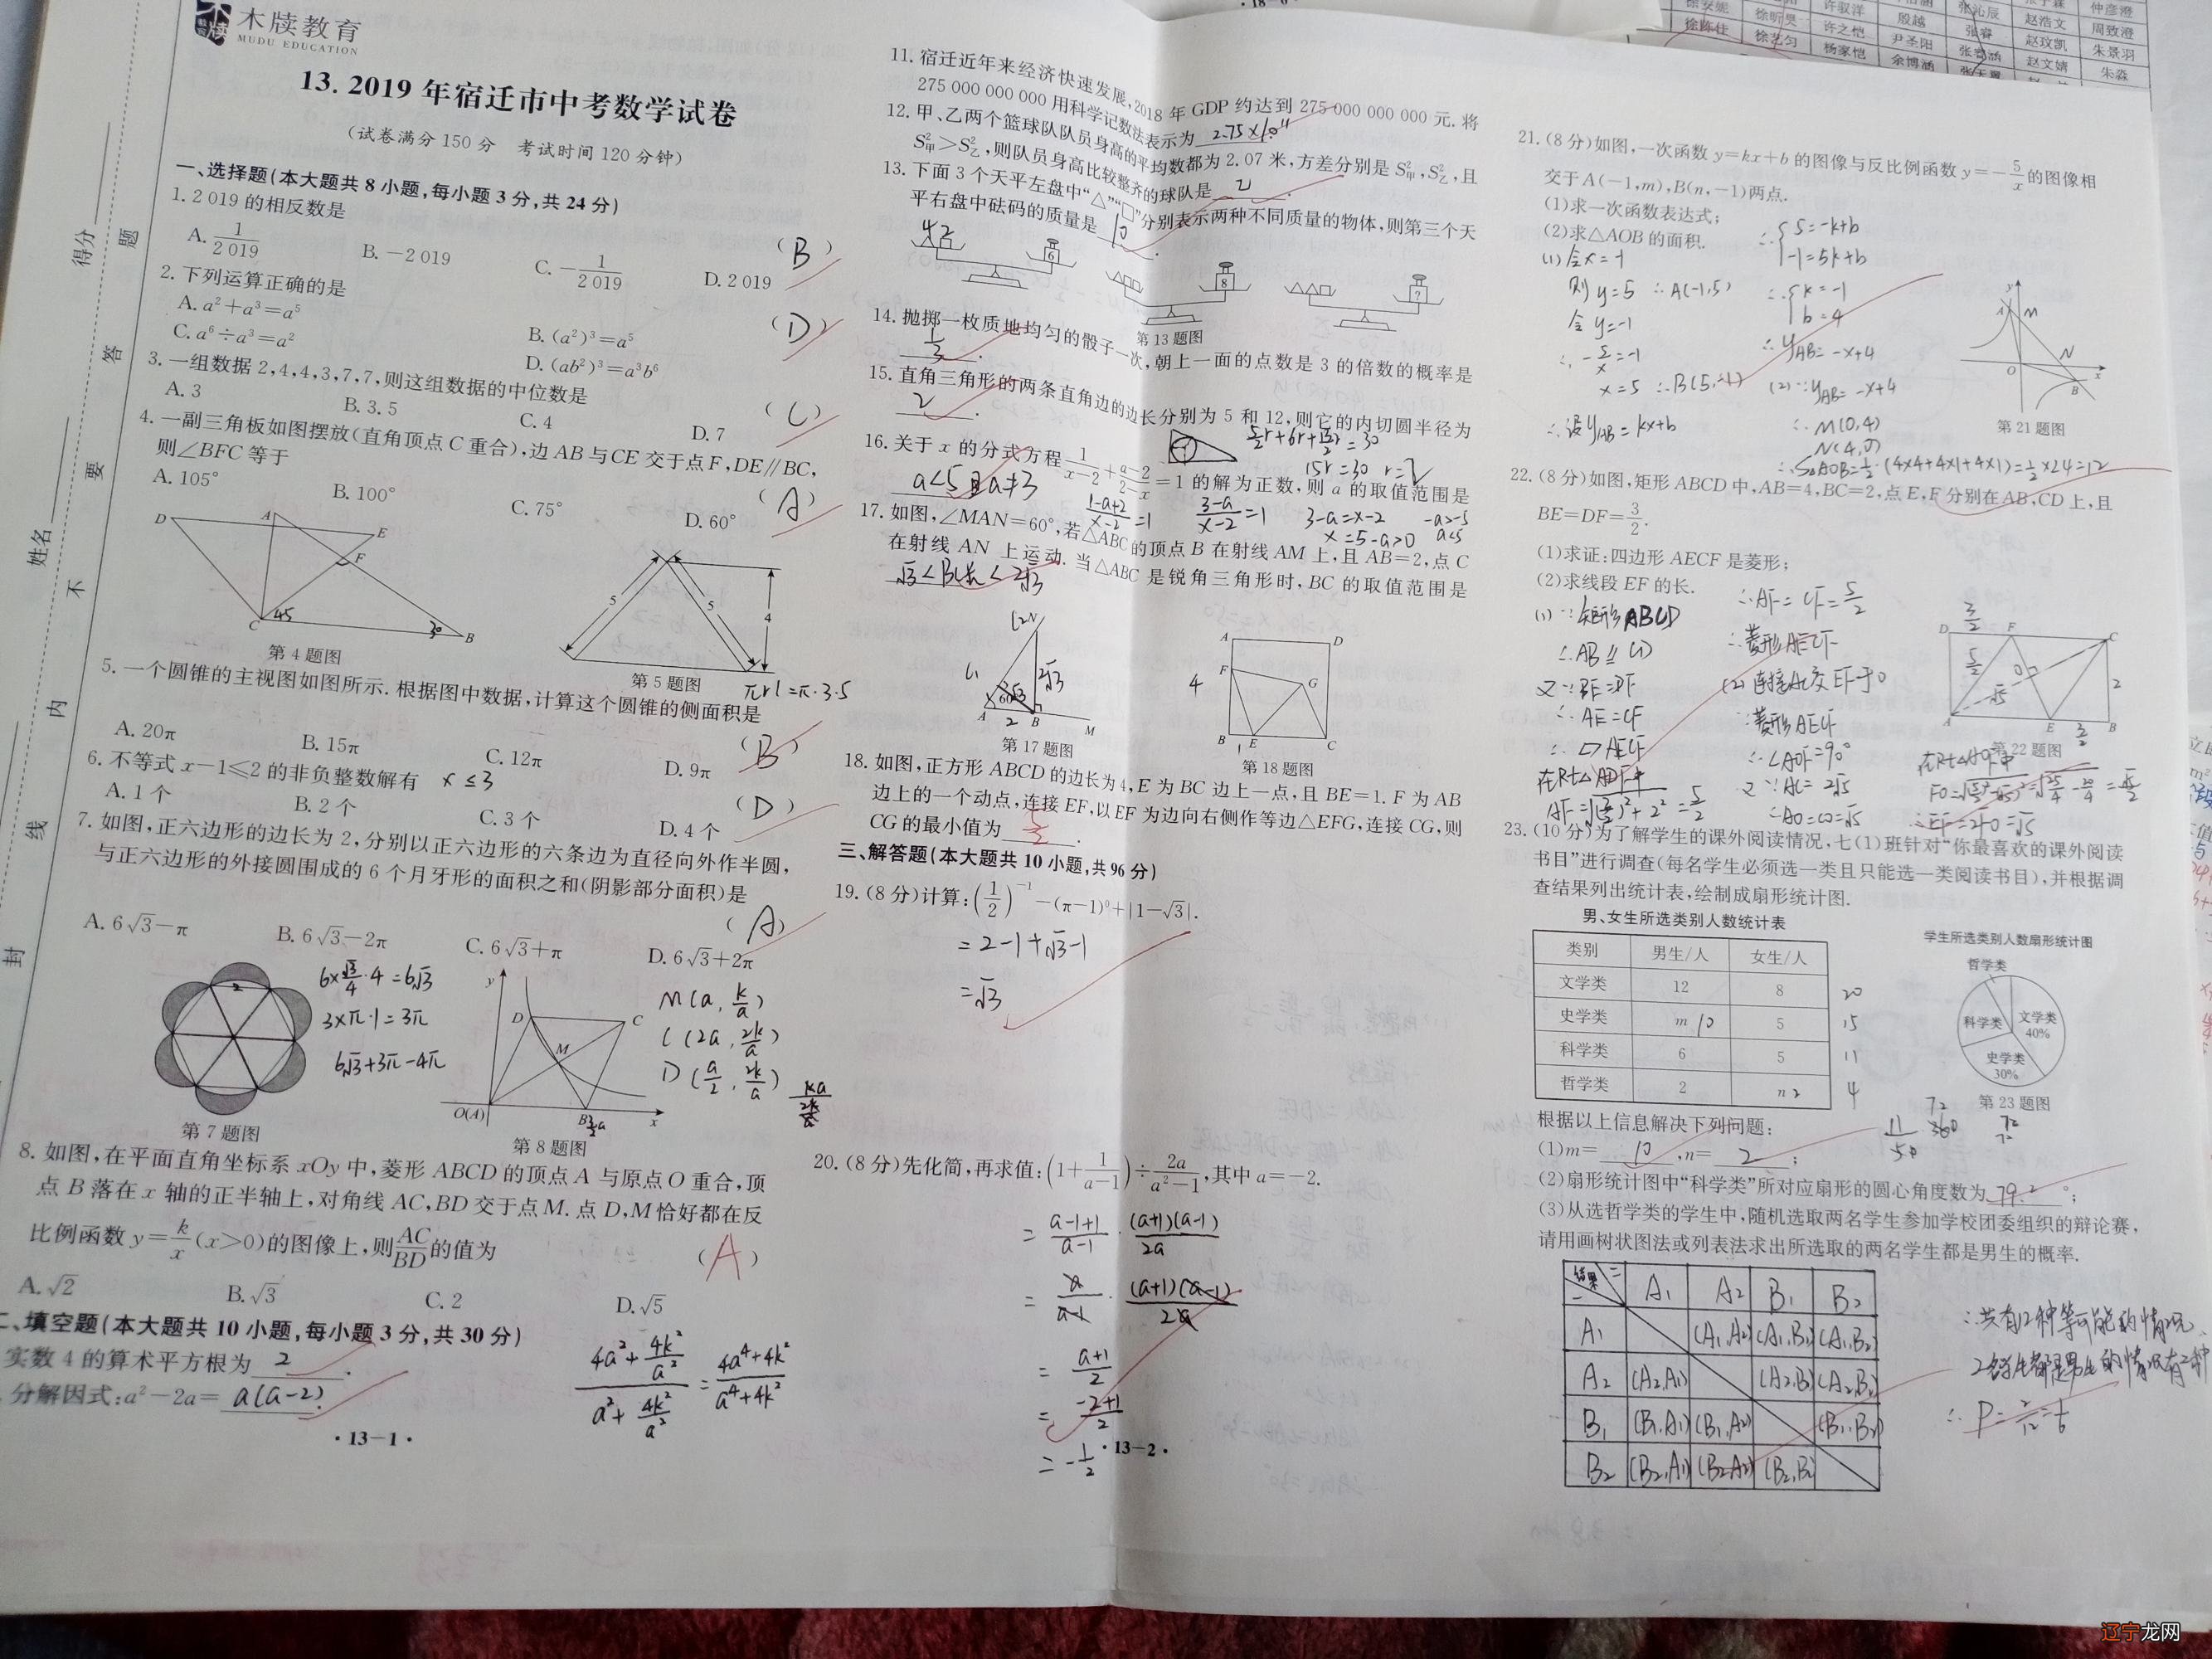 木牍教育
MUDU EDUCATION
13. 2019 年宿迁市中考数学试卷
(试卷满分 150 分 考试时间 120 分钟)
一、选择题(本大题共 8 小题,每小题 3 分,共 24 分)
1. 2 019 的相反数是
(B)
A. 1/2 019 B. −2 019 C. −1/2 019 D. 2 019
2. 下列运算正确的是
(D)
A. a²+a³=a⁵ B. (a²)³=a⁵
C. a⁶÷a³=a² D. (ab²)³=a³b⁶
3. 一组数据 2,4,4,3,7,7,则这组数据的中位数是
(C)
A. 3 B. 3. 5 C. 4 D. 7
4. 一副三角板如图摆放(直角顶点 C 重合),边 AB 与 CE 交于点 F,DE∥BC,
则∠BFC 等于
(A)
A. 105° B. 100° C. 75° D. 60°
D A E F C 45 30 B
第 4 题图
5 5 4
第 5 题图
πrl=π·3·5
5. 一个圆锥的主视图如图所示. 根据图中数据,计算这个圆锥的侧面积是
(B)
A. 20π B. 15π C. 12π D. 9π
6. 不等式 x−1≤2 的非负整数解有 x≤3
(D)
A. 1 个 B. 2 个 C. 3 个 D. 4 个
7. 如图,正六边形的边长为 2,分别以正六边形的六条边为直径向外作半圆,
与正六边形的外接圆围成的 6 个月牙形的面积之和(阴影部分面积)是
(A)
A. 6√3−π B. 6√3−2π C. 6√3+π D. 6√3+2π
2
6×√3/4·4=6√3
3×π·1=3π
6√3+3π−4π
第 7 题图
y D C M O(A) B x
M(a, k/a)
C(2a, 2k/a)
D(a/2, 2k/a)
第 8 题图
8. 如图,在平面直角坐标系 xOy 中,菱形 ABCD 的顶点 A 与原点 O 重合,顶
点 B 落在 x 轴的正半轴上,对角线 AC,BD 交于点 M. 点 D,M 恰好都在反
比例函数 y=k/x(x>0)的图像上,则AC/BD的值为
(A)
A. √2 B. √3 C. 2 D. √5
二、填空题(本大题共 10 小题,每小题 3 分,共 30 分)
实数 4 的算术平方根为 2 .
分解因式:a²−2a= a(a−2).
· 13−1 ·
11. 宿迁近年来经济快速发展,2018 年 GDP 约达到 275 000 000 000 元. 将
275 000 000 000 用科学记数法表示为 2.75×10¹¹ .
12. 甲、乙两个篮球队队员身高的平均数都为 2.07 米,方差分别是 S²甲,S²乙,且
S²甲>S²乙,则队员身高比较整齐的球队是 乙 .
13. 下面 3 个天平左盘中“△”“□”分别表示两种不同质量的物体,则第三个天
平右盘中砝码的质量是 10 .
6 8 ?
第 13 题图
14. 抛掷一枚质地均匀的骰子一次,朝上一面的点数是 3 的倍数的概率是
1/3 .
15. 直角三角形的两条直角边的边长分别为 5 和 12,则它的内切圆半径为
2 .
5/2r+6r+13/2r=30
15r=30 r=2
16. 关于 x 的分式方程1/(x−2)+(a−2)/(2−x)=1 的解为正数,则 a 的取值范围是
a<5且a≠3
(1−a+2)/(x−2)=1 (3−a)/(x−2)=1 3−a=x−2 −a>−5
x=5−a>0 a<5
17. 如图,∠MAN=60°,若△ABC 的顶点 B 在射线 AM 上,且 AB=2,点 C
在射线 AN 上运动. 当△ABC 是锐角三角形时,BC 的取值范围是
√3<BC长<2√3
N 2√3 √3 60° A 2 B M
第 17 题图
A D F G 4 B 1 E C
第 18 题图
18. 如图,正方形 ABCD 的边长为 4,E 为 BC 边上一点,且 BE=1. F 为 AB
边上的一个动点,连接 EF,以 EF 为边向右侧作等边△EFG,连接 CG,则
CG 的最小值为 5/2 .
三、解答题(本大题共 10 小题,共 96 分)
19. (8 分)计算:(1/2)⁻¹−(π−1)⁰+|1−√3|.
=2−1+√3−1
=√3
20. (8 分)先化简,再求值:(1+1/(a−1))÷2a/(a²−1),其中 a=−2.
=(a−1+1)/(a−1)·(a+1)(a−1)/2a
=a/(a−1)·(a+1)(a−1)/2a
=(a+1)/2
=(−2+1)/2
=−1/2
(4a²+4k²/a²)/(a²+4k²/a²)=(4a⁴+4k²)/(a⁴+4k²)
· 13−2 ·
21. (8 分)如图,一次函数 y=kx+b 的图像与反比例函数 y=−5/x的图像相
交于 A(−1,m),B(n,−1)两点.
(1)求一次函数表达式;
(2)求△AOB 的面积.
(1)令x=−1
则 y=5 ∴A(−1,5)
令 y=−1
∴−5/x=−1
x=5 ∴B(5,−1)
∴设yAB=kx+b
∴{5=−k+b
−1=5k+b
∴{k=−1
b=4
∴yAB=−x+4
(2)∵yAB=−x+4
∴M(0,4)
N(4,0)
∴S△AOB=1/2·(4×4+4×1+4×1)=1/2×24=12
y A M N O x B
第 21 题图
22. (8 分)如图,矩形 ABCD 中,AB=4,BC=2,点 E,F 分别在 AB,CD 上,且
BE=DF=3/2.
(1)求证:四边形 AECF 是菱形;
(2)求线段 EF 的长.
(1)∵矩形ABCD
∴AB∥CD
又∵BE=DF
∴AE=CF
∴▱AECF
在Rt△ADF中
AF=√(3/2)²+2²=5/2
∴AF=CF=5/2
∴菱形AECF
(2)连接AC交EF于O
∵菱形AECF
∴∠AOF=90°
又∵AC=2√5
∴AO=CO=√5
在Rt△AOF中
FO=√(5/2)²−(√5)²=√25/4−20/4=√5/2
∴EF=2FO=√5
D 3/2 F C 5/2 O √5 2 A E 3/2 B
第 22 题图
23. (10 分)为了解学生的课外阅读情况,七(1)班针对“你最喜欢的课外阅读
书目”进行调查(每名学生必须选一类且只能选一类阅读书目),并根据调
查结果列出统计表,绘制成扇形统计图.
男、女生所选类别人数统计表
类别 男生/人 女生/人
文学类 12 8 20
史学类 m 10 5 15
科学类 6 5 11
哲学类 2 n 2 4
学生所选类别人数扇形统计图
哲学类
科学类
文学类
40%
史学类
30%
第 23 题图
根据以上信息解决下列问题:
(1)m= 10 ,n= 2 ;
11/50 360 72
(2)扇形统计图中“科学类”所对应扇形的圆心角度数为 79.2 °;
(3)从选哲学类的学生中,随机选取两名学生参加学校团委组织的辩论赛,
请用画树状图法或列表法求出所选取的两名学生都是男生的概率.
结果 一 二 A₁ A₂ B₁ B₂
A₁ (A₁,A₂) (A₁,B₁) (A₁,B₂)
A₂ (A₂,A₁) (A₂,B₁) (A₂,B₂)
B₁ (B₁,A₁) (B₁,A₂) (B₁,B₂)
B₂ (B₂,A₁) (B₂,A₂) (B₂,B₁)
∴共有12种等可能的情况,
2名学生都是男生的情况有2种
∴P=2/12=1/6
得分
姓名
题
答
要
不
内
线
封
许驭洋
殷越
张睿
赵浩文
仲彦澄
许之恺
尹圣阳
赵玟凯
周致澄
杨家恺
余博涵
赵文婧
朱景羽
朱淼
辽宁龙网